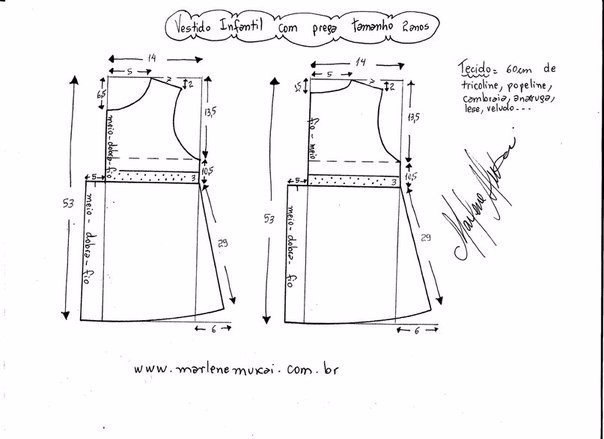 Vestido Infantil com prega tamanho 2anos
14
5
7
2
6,5
13,5
10,5
meio-dobra-fio
5
3
53
meio-dobra-fio
29
6
14
5
7
2
13,5
10,5
fio-meio
5
3
53
meio-dobra-fio
29
6
Tecido= 60cm de
tricoline, popeline,
cambraia, anarruga,
lese, veludo...
Marlene Mukai
www.marlenemukai.com.br